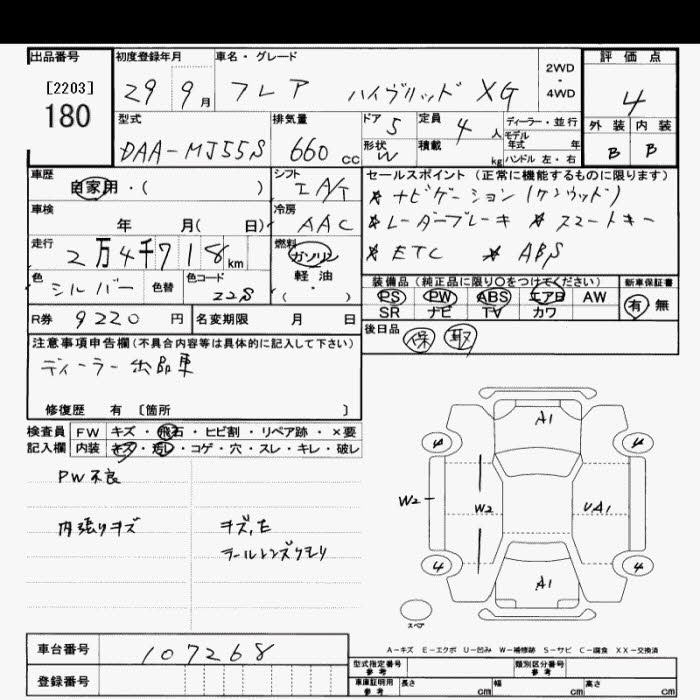 出品番号 初度登録年月 車名・グレード 2WD・4WD 評価点
[2203] 180 29 9月 フレア ハイブリッド XG 4
型式 排気量 ドア 定員 ディーラー・並行 外装 内装
DAA-MJ55S 660cc 5 4人 モデル年式 年 B B
形状 W 積載 kg ハンドル 左・右
車歴 自家用・( ) シフト IA/T セールスポイント (正常に機能するものに限ります)
* ナビゲーション(ケンウッド)
車検 年 月( 日) 冷房 AAC * レーダーブレーキ * スマートキー
走行 2万4千718km 燃料 ガソリン * ETC * ABS
軽油・( )
色 シルバー 色替 色コード Z2S 装備品 (純正品に限り○をつけてください) 新車保証書
PS PW ABS エアB AW 有 無
SR ナビ TV カワ
R券 9220円 名変期限 月 日 後日品 保 取
注意事項申告欄(不具合内容等は具体的に記入して下さい)
ディーラー出品車
修復歴 有 [箇所 ]
検査員 FW キズ・飛石・ヒビ割・リペア跡・×要
記入欄 内装 キズ・汚レ・コゲ・穴・スレ・キレ・破レ
PW不良
内張りキズ キズ,E
テールレンズクモリ
A1
4 4
W2 W2 UA1
4 4
A1
スペア
A-キズ E-エクボ U-凹み W-補修跡 S-サビ C-腐食 XX-交換済
車台番号 107268
型式指定番号 参考 類別区分番号 参考
登録番号
車庫証明用 参考 長さ cm 幅 cm 高さ cm